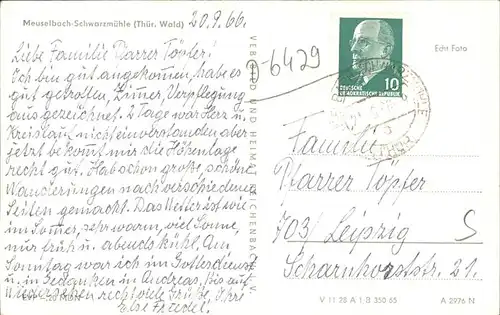 Meuselbach-Schwarzmühle (Thür. Wald)
20.9.66.
Liebe Familie Pfarrer Töpfer!
Ich bin gut angekommen, habe es
gut getroffen, Zimmer, Verpflegung
ausgezeichnet. 2 Tage war Herz u.
Kreislauf nicht einverstanden, aber
jetzt bekommt mir die Höhenlage
recht gut. Hab schon große, schöne
Wanderungen nach verschiedenen
Seiten gemacht. Das Wetter ist wie
im Sommer, sehr warm, viel Sonne,
nur früh u. abends kühl. Am
Sonntag war ich im Gottesdienst
u. in Gedanken in Andreas, bis auf
Wiedersehen recht viele Grüße, Ihre
Else Friedel.
VEB BILD UND HEIMAT REICHENBACH I. V.
6429
Echt Foto
DEUTSCHE
DEMOKRATISCHE REPUBLIK
10
Familie
Pfarrer Töpfer
703/ Leipzig S
Scharnhorststr. 21.
V 11 28 A 1,B 350 65
A 2976 N